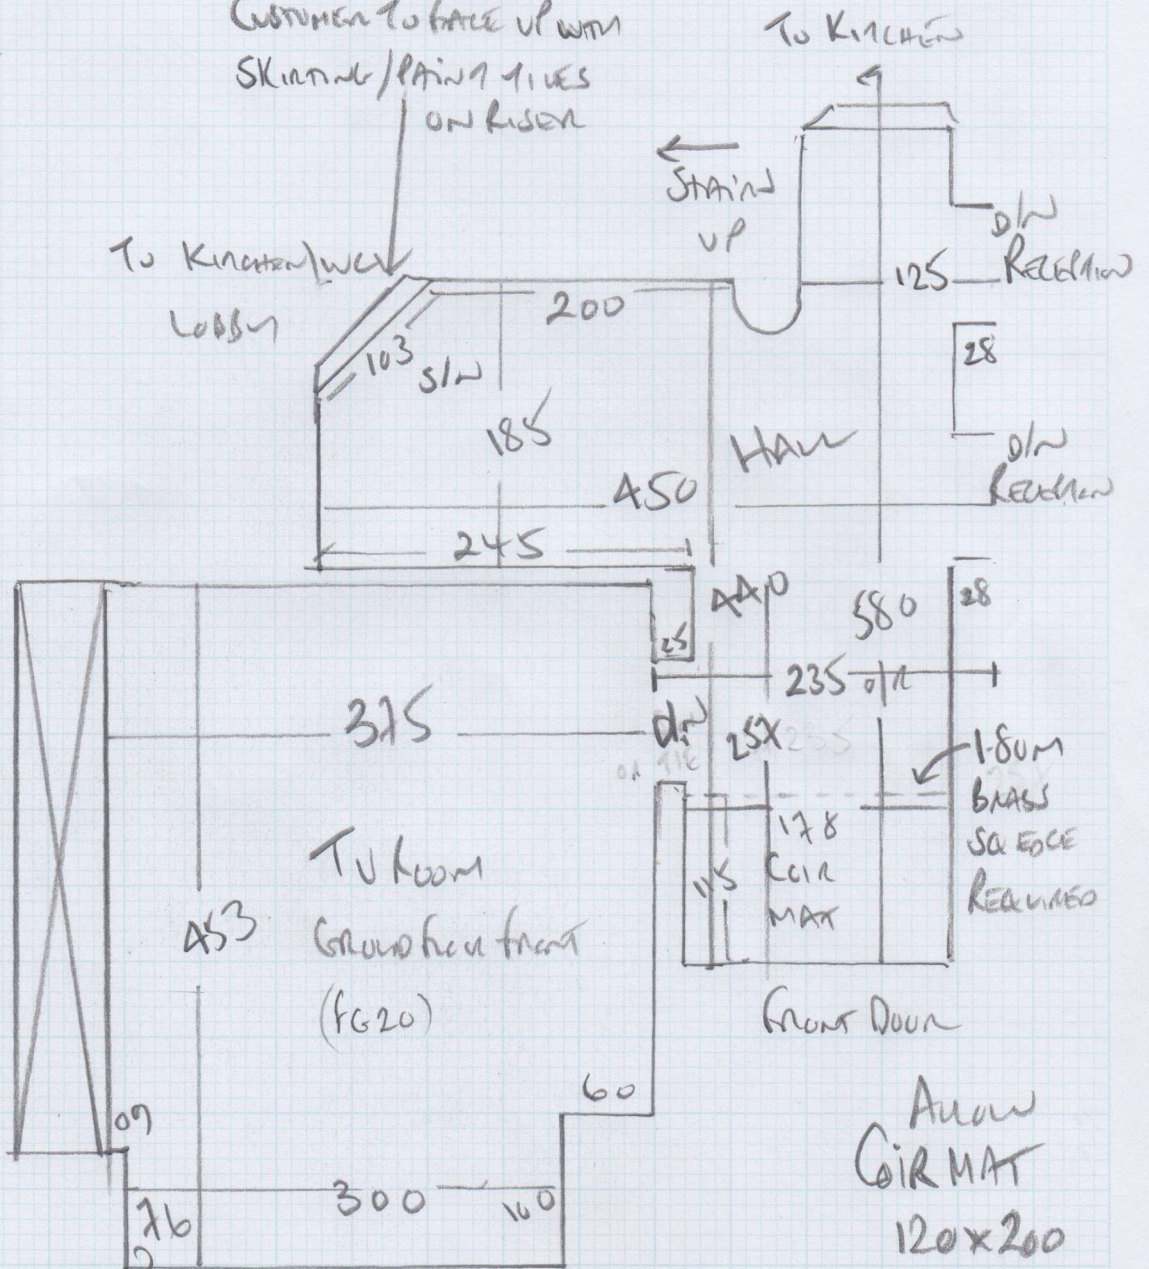 CUSTOMER TO FACE UP WITH
SKIRTING/PAINT TILES
ON RISER
TO KITCHEN
STAIRS
UP
D/W
RECEPTION
125
TO KITCHEN/WC
LOBBY
200
28
103
S/W
185
HALL
D/W
RECEPTION
450
245
440
580
28
25
235 O/R
375
D/W
257
1.80M
BRASS
SQ EDGE
REQUIRED
178
COIR
MAT
115
TV ROOM
GROUND FLOOR FRONT
(FG20)
453
FRONT DOOR
60
09
ALLOW
COIR MAT
120 x 200
300
76
100